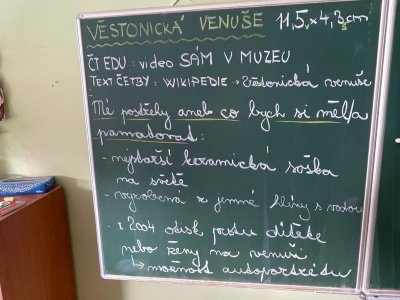 VĚSTONICKÁ VENUŠE 11,5 x 4,3 cm
ČT EDU : video SÁM V MUZEU
TEXT ČETBY : WIKIPEDIE → Věstonická venuše
Mé postřehy aneb co bych si měl/a
pamatovat :
- nejstarší keramická soška
na světě
- vyrobena z jemné hlíny s vodou
- r. 2004 otisk prstu dítěte
nebo ženy na venuši
↳ možnost autoportrétu